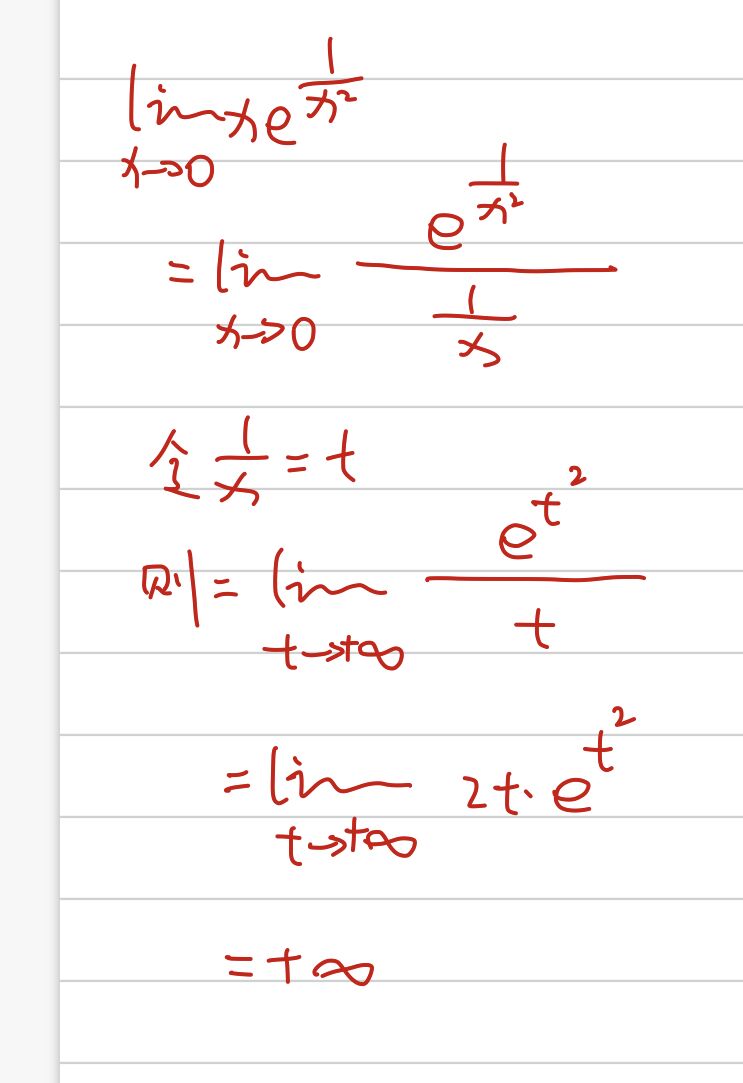 lim x→0 x e^(1/x²)
= lim x→0 e^(1/x²) / (1/x)
令 1/x = t
则 = lim t→+∞ e^(t²) / t
= lim t→+∞ 2t · e^(t²)
= +∞